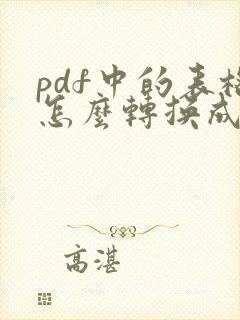 pdf中的表格
怎麼轉換成
高湛